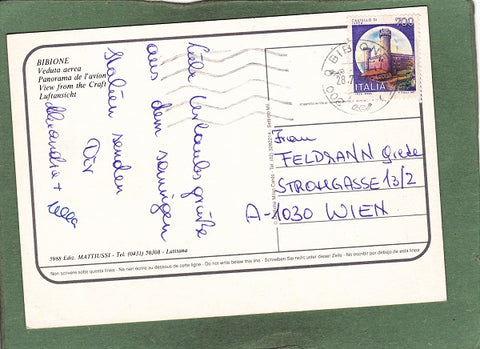 BIBIONE
Veduta aerea
Panorama de l'avion
View from the Craft
Luftansicht
Liebe Urlaubsgrüße
aus dem sonnigen
Italien senden
Dir
Alexandra +
700
ITALIA
Frau
FELDMANN Grete
STROHGASSE 13/2
A-1030 WIEN
5988 Ediz. MATTIUSSI - Tel. (0431) 50308 - Latisana
Non scrivere sotto questa linea - Ne rien écrire au dessous de cette ligne - Do not write below this line - Schreiben Sie nicht unter dieser Zeile - No escribir por debajo de esta linea